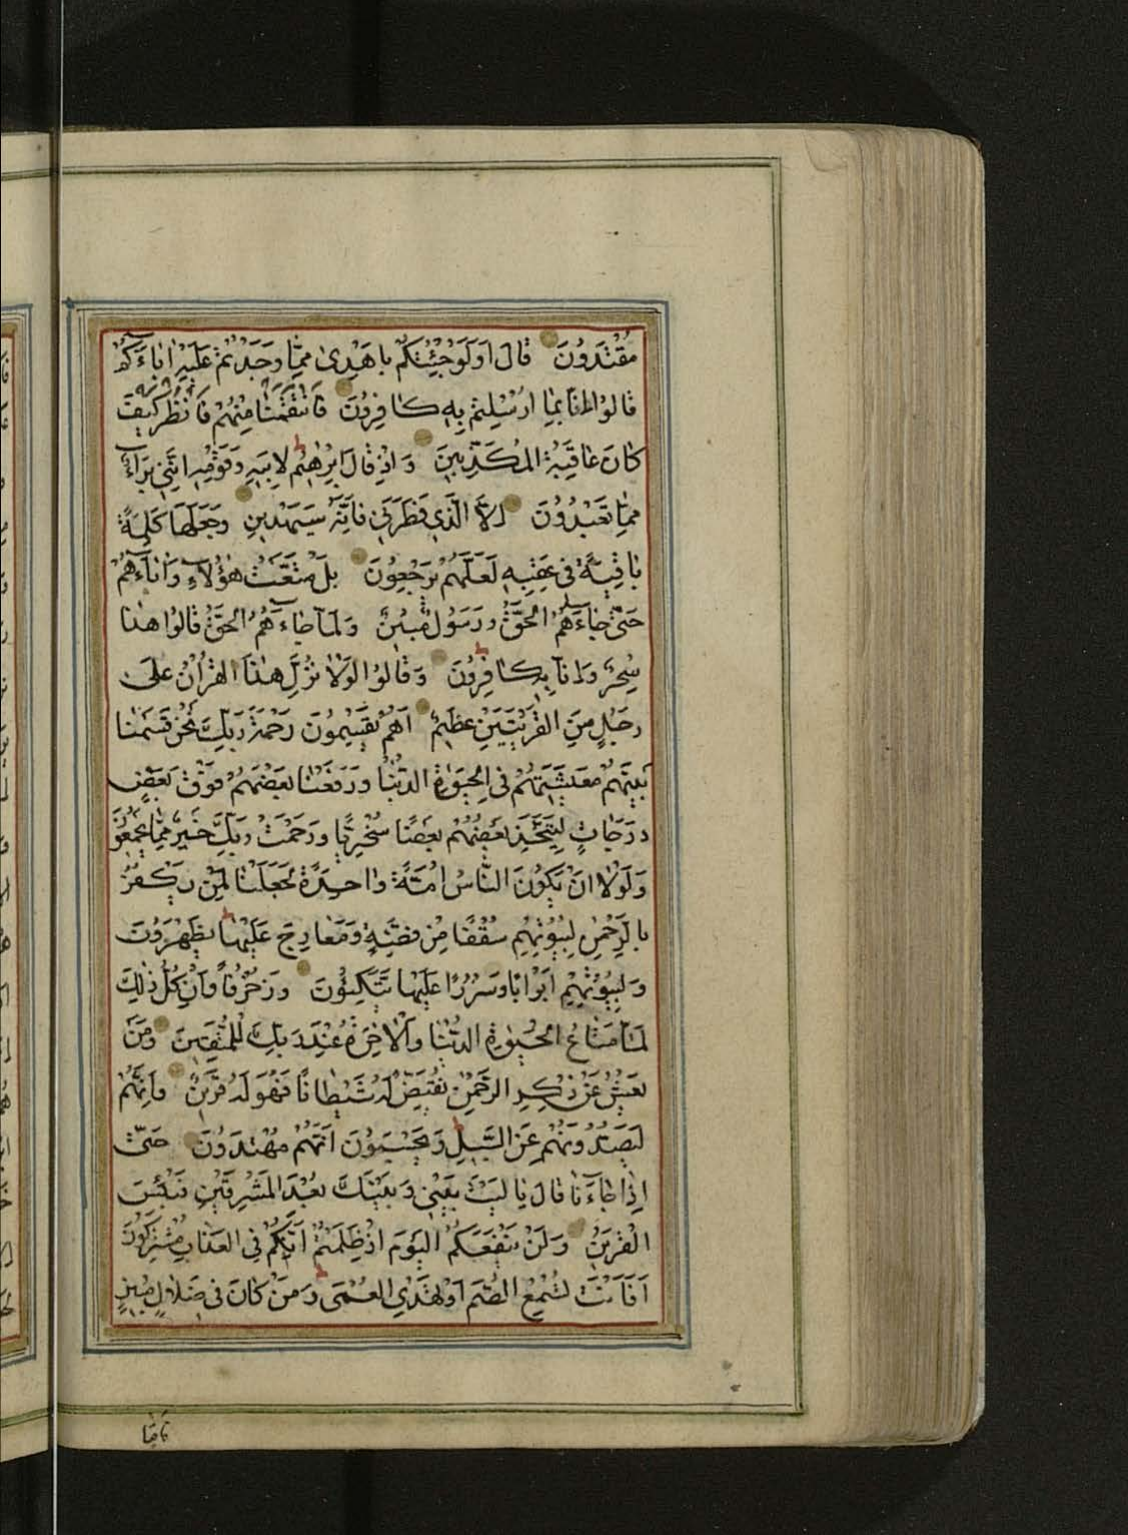 مُقْتَدُونَ قَالَ اَوَلَوْ جِئْتُكُمْ بِاَهْدٰى مِمَّا وَجَدْتُمْ عَلَيْهِ اٰبَاءَكُمْ
قَالُوا اِنَّا بِمَا اُرْسِلْتُمْ بِهِ كَافِرُونَ فَانْتَقَمْنَا مِنْهُمْ فَانْظُرْ كَيْفَ
كَانَ عَاقِبَةُ الْمُكَذِّبِينَ وَاِذْ قَالَ اِبْرٰهِيمُ لِاَبِيهِ وَقَوْمِهِ اِنَّنِي بَرَاءٌ
مِمَّا تَعْبُدُونَ اِلَّا الَّذِي فَطَرَنِي فَاِنَّهُ سَيَهْدِينِ وَجَعَلَهَا كَلِمَةً
بَاقِيَةً فِي عَقِبِهِ لَعَلَّهُمْ يَرْجِعُونَ بَلْ مَتَّعْتُ هٰؤُلَاءِ وَاٰبَاءَهُمْ
حَتّٰى جَاءَهُمُ الْحَقُّ وَرَسُولٌ مُبِينٌ وَلَمَّا جَاءَهُمُ الْحَقُّ قَالُوا هٰذَا
سِحْرٌ وَاِنَّا بِهِ كَافِرُونَ وَقَالُوا لَوْلَا نُزِّلَ هٰذَا الْقُرْاٰنُ عَلٰى
رَجُلٍ مِنَ الْقَرْيَتَيْنِ عَظِيمٍ اَهُمْ يَقْسِمُونَ رَحْمَةَ رَبِّكَ نَحْنُ قَسَمْنَا
بَيْنَهُمْ مَعِيشَتَهُمْ فِي الْحَيٰوةِ الدُّنْيَا وَرَفَعْنَا بَعْضَهُمْ فَوْقَ بَعْضٍ
دَرَجَاتٍ لِيَتَّخِذَ بَعْضُهُمْ بَعْضًا سُخْرِيًّا وَرَحْمَتُ رَبِّكَ خَيْرٌ مِمَّا يَجْمَعُونَ
وَلَوْلَا اَنْ يَكُونَ النَّاسُ اُمَّةً وَاحِدَةً لَجَعَلْنَا لِمَنْ يَكْفُرُ
بِالرَّحْمٰنِ لِبُيُوتِهِمْ سُقُفًا مِنْ فِضَّةٍ وَمَعَارِجَ عَلَيْهَا يَظْهَرُونَ
وَلِبُيُوتِهِمْ اَبْوَابًا وَسُرُرًا عَلَيْهَا يَتَّكِئُونَ وَزُخْرُفًا وَاِنْ كُلُّ ذٰلِكَ
لَمَّا مَتَاعُ الْحَيٰوةِ الدُّنْيَا وَالْاٰخِرَةُ عِنْدَ رَبِّكَ لِلْمُتَّقِينَ وَمَنْ
يَعْشُ عَنْ ذِكْرِ الرَّحْمٰنِ نُقَيِّضْ لَهُ شَيْطَانًا فَهُوَ لَهُ قَرِينٌ وَاِنَّهُمْ
لَيَصُدُّونَهُمْ عَنِ السَّبِيلِ وَيَحْسَبُونَ اَنَّهُمْ مُهْتَدُونَ حَتّٰى
اِذَا جَاءَنَا قَالَ يَا لَيْتَ بَيْنِي وَبَيْنَكَ بُعْدَ الْمَشْرِقَيْنِ فَبِئْسَ
الْقَرِينُ وَلَنْ يَنْفَعَكُمُ الْيَوْمَ اِذْ ظَلَمْتُمْ اَنَّكُمْ فِي الْعَذَابِ مُشْتَرِكُونَ
اَفَاَنْتَ تُسْمِعُ الصُّمَّ اَوْ تَهْدِي الْعُمْيَ وَمَنْ كَانَ فِي ضَلَالٍ مُبِينٍ
فَاِمَّا